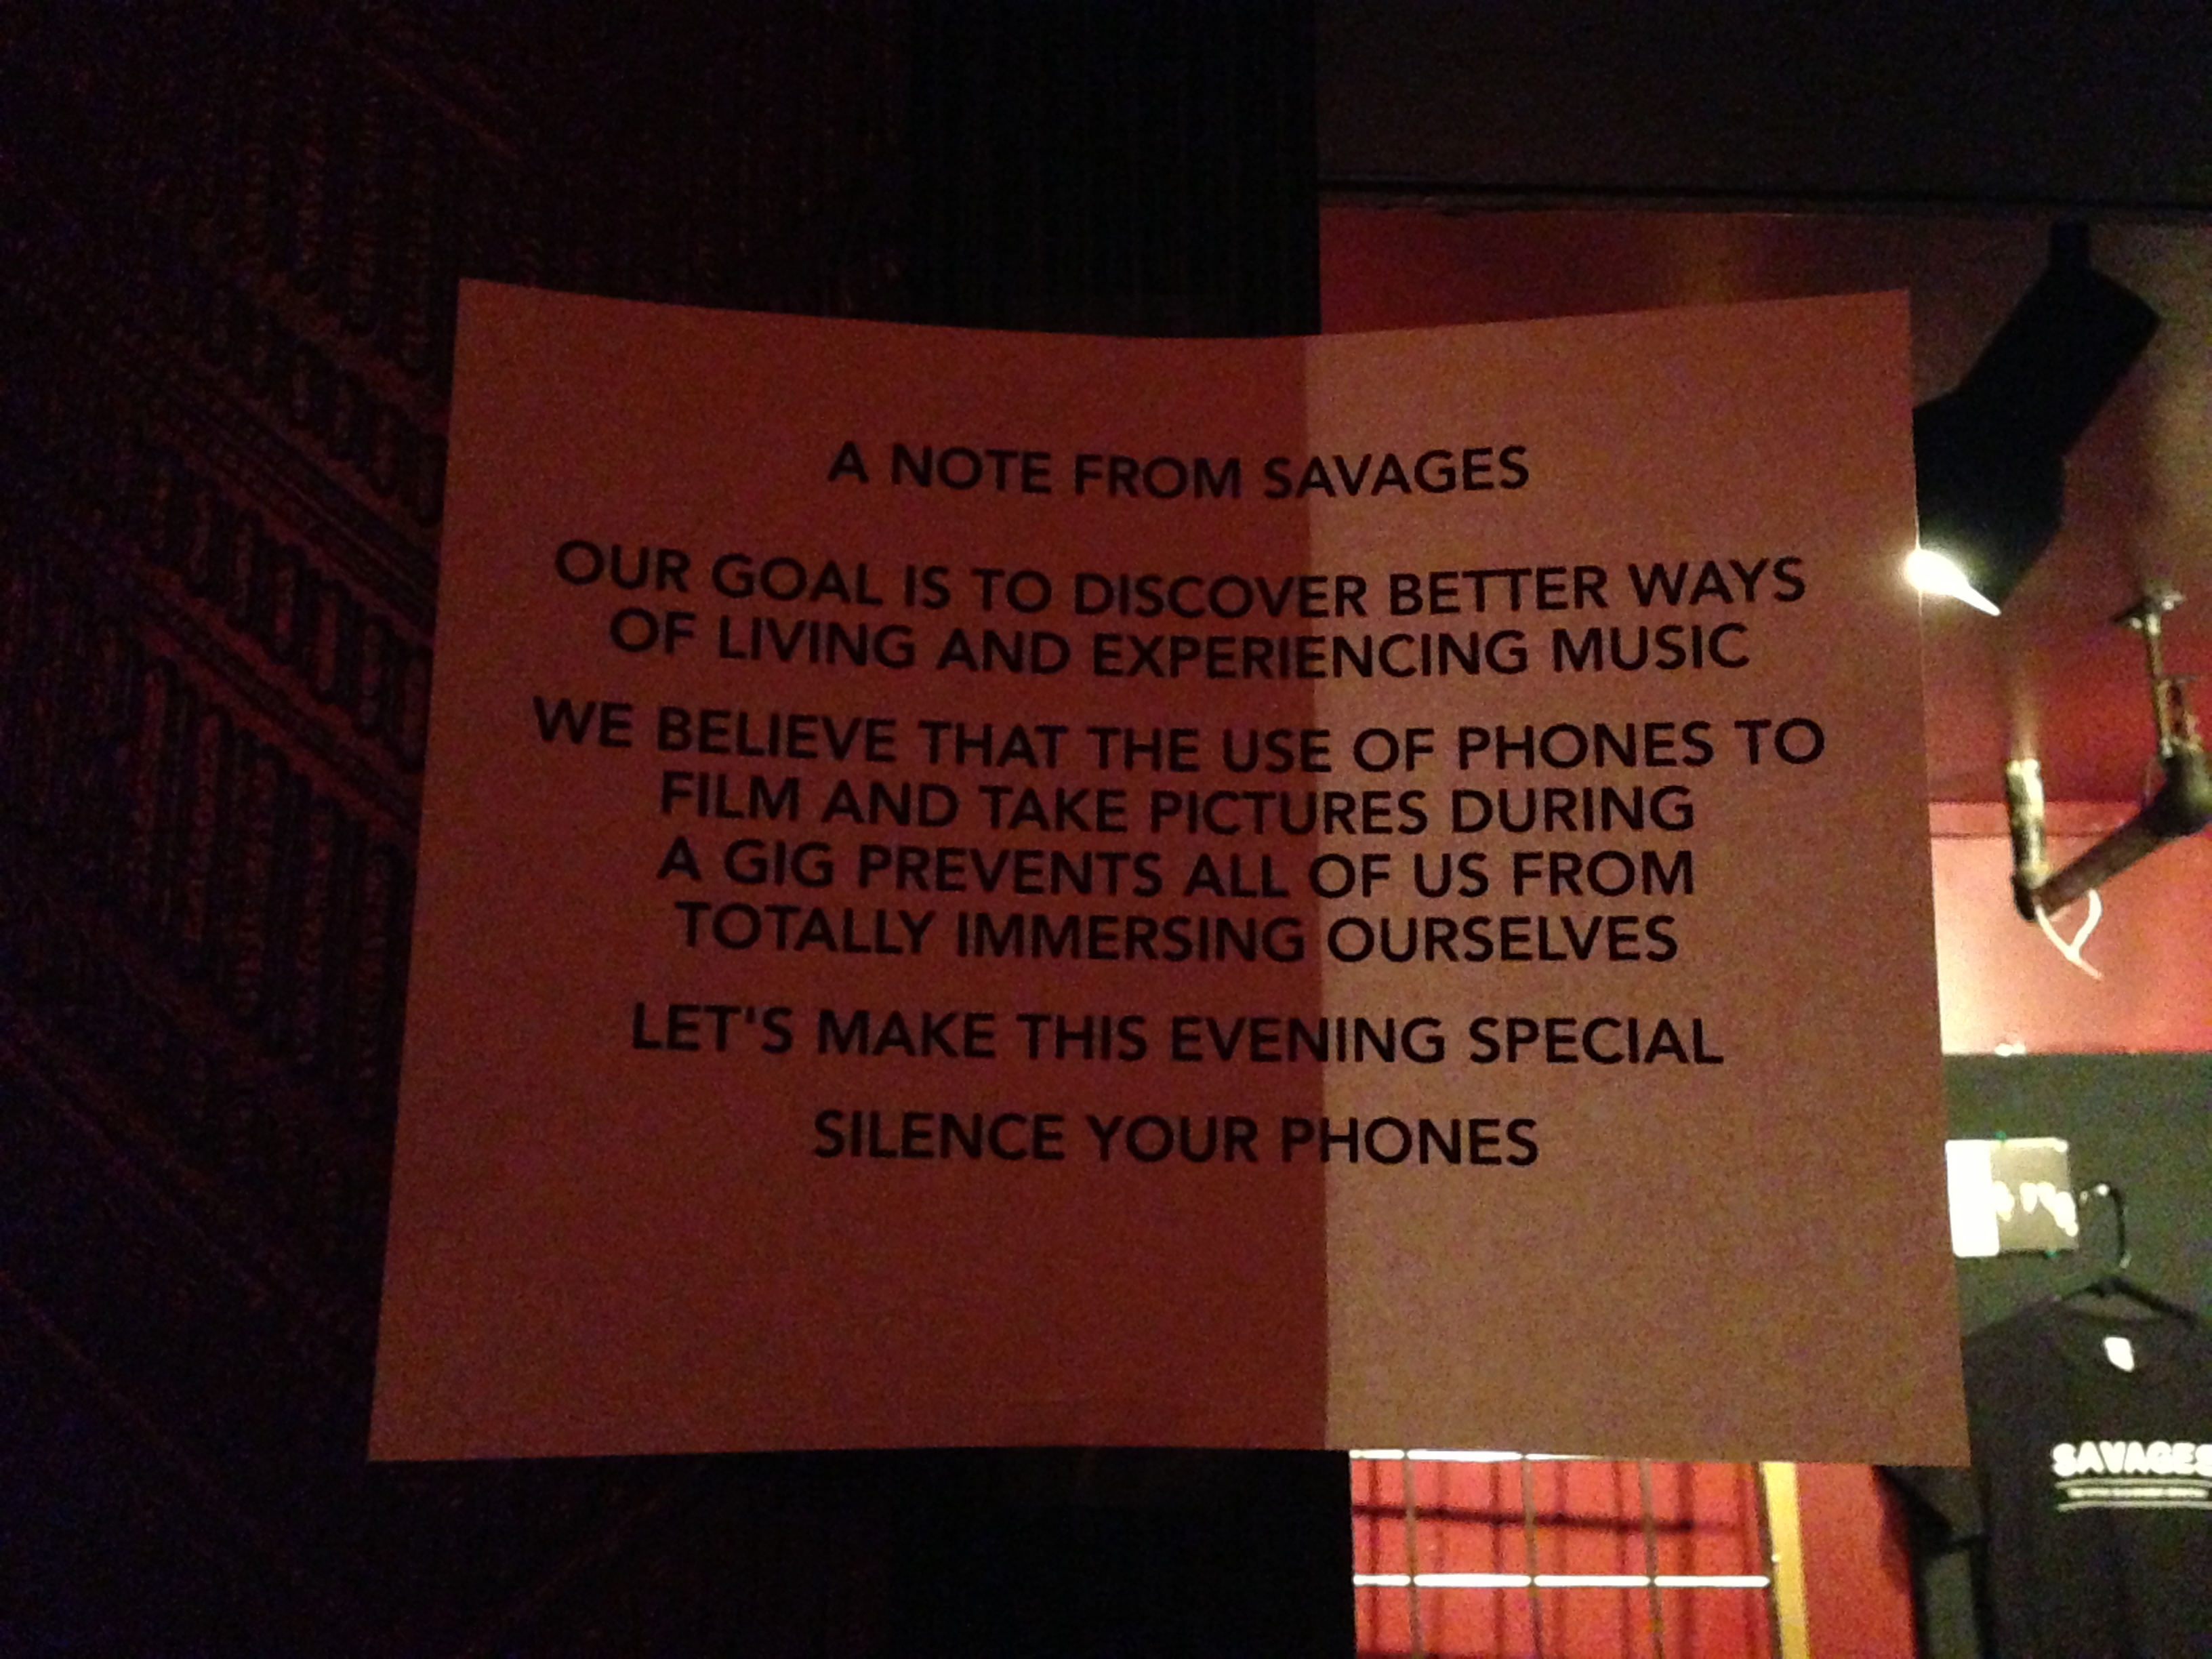 A NOTE FROM SAVAGES
OUR GOAL IS TO DISCOVER BETTER WAYS
OF LIVING AND EXPERIENCING MUSIC
WE BELIEVE THAT THE USE OF PHONES TO
FILM AND TAKE PICTURES DURING
A GIG PREVENTS ALL OF US FROM
TOTALLY IMMERSING OURSELVES
LET'S MAKE THIS EVENING SPECIAL
SILENCE YOUR PHONES
SAVAGES